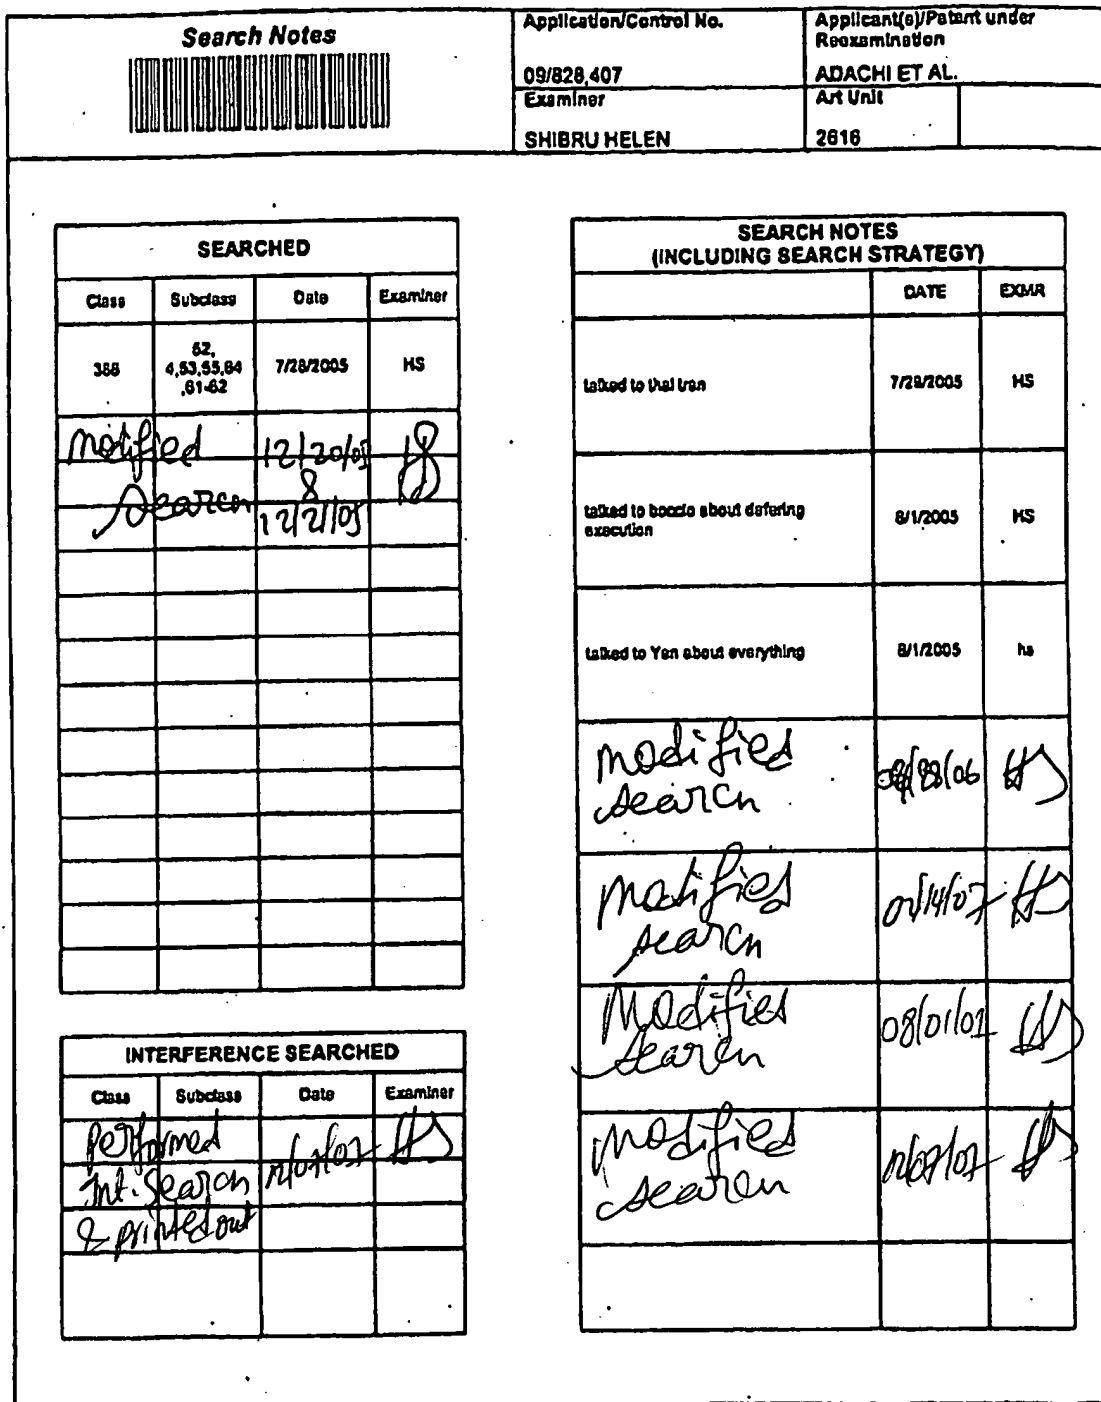 Search Notes
Application/Control No.
09/828,407
Applicant(s)/Patent under
Reexamination
ADACHI ET AL.
Examiner
SHIBRU HELEN
Art Unit
2616
SEARCHED
Class Subclass Date Examiner
386
52,
4,53,55,64
,61-62
7/28/2005 HS
modified 12/20/05 HS
search &
12/21/05
INTERFERENCE SEARCHED
Class Subclass Date Examiner
Performed
Int. Search 12/07/07 HS
& printed out
SEARCH NOTES
(INCLUDING SEARCH STRATEGY)
DATE EXMR
talked to thai tran 7/29/2005 HS
talked to boccio about defering
execution
8/1/2005 HS
talked to Yen about everything 8/1/2005 hs
modified
search
HS
modified
search
HS
Modified
search
08/01/07 HS
modified
search
12/07/07 HS